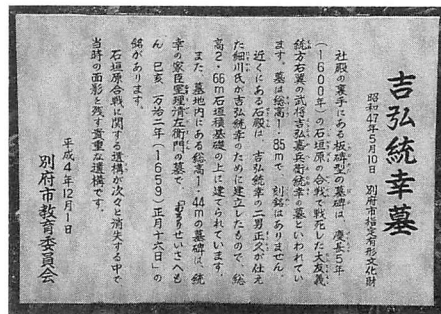 吉弘統幸墓
昭和47年5月10日 別府市指定有形文化財
社殿の裏手にある板碑型の墓碑は、慶長5年
(1600年)の石垣原の合戦で戦死した大友義
統方右翼の武将吉弘嘉兵衛統幸の墓といわれてい
ます。墓は総高1.85mで、刻銘はありません。
近くにある石殿は、吉弘統幸の二男正久が仕え
た細川氏が吉弘統幸のために建立したもので、総
高2.66m石垣積基礎の上に建てられています。
また、墓地内にある総高1.44mの墓碑は、統
幸の家臣室理清左衛門の墓で、「むろりせいさへも
ん 己亥 万治二年(1659)正月十六日」の
銘があります。
石垣原合戦に関する遺構が次々と消失する中で
当時の面影を残す貴重な遺構です。
平成4年12月1日
別府市教育委員会